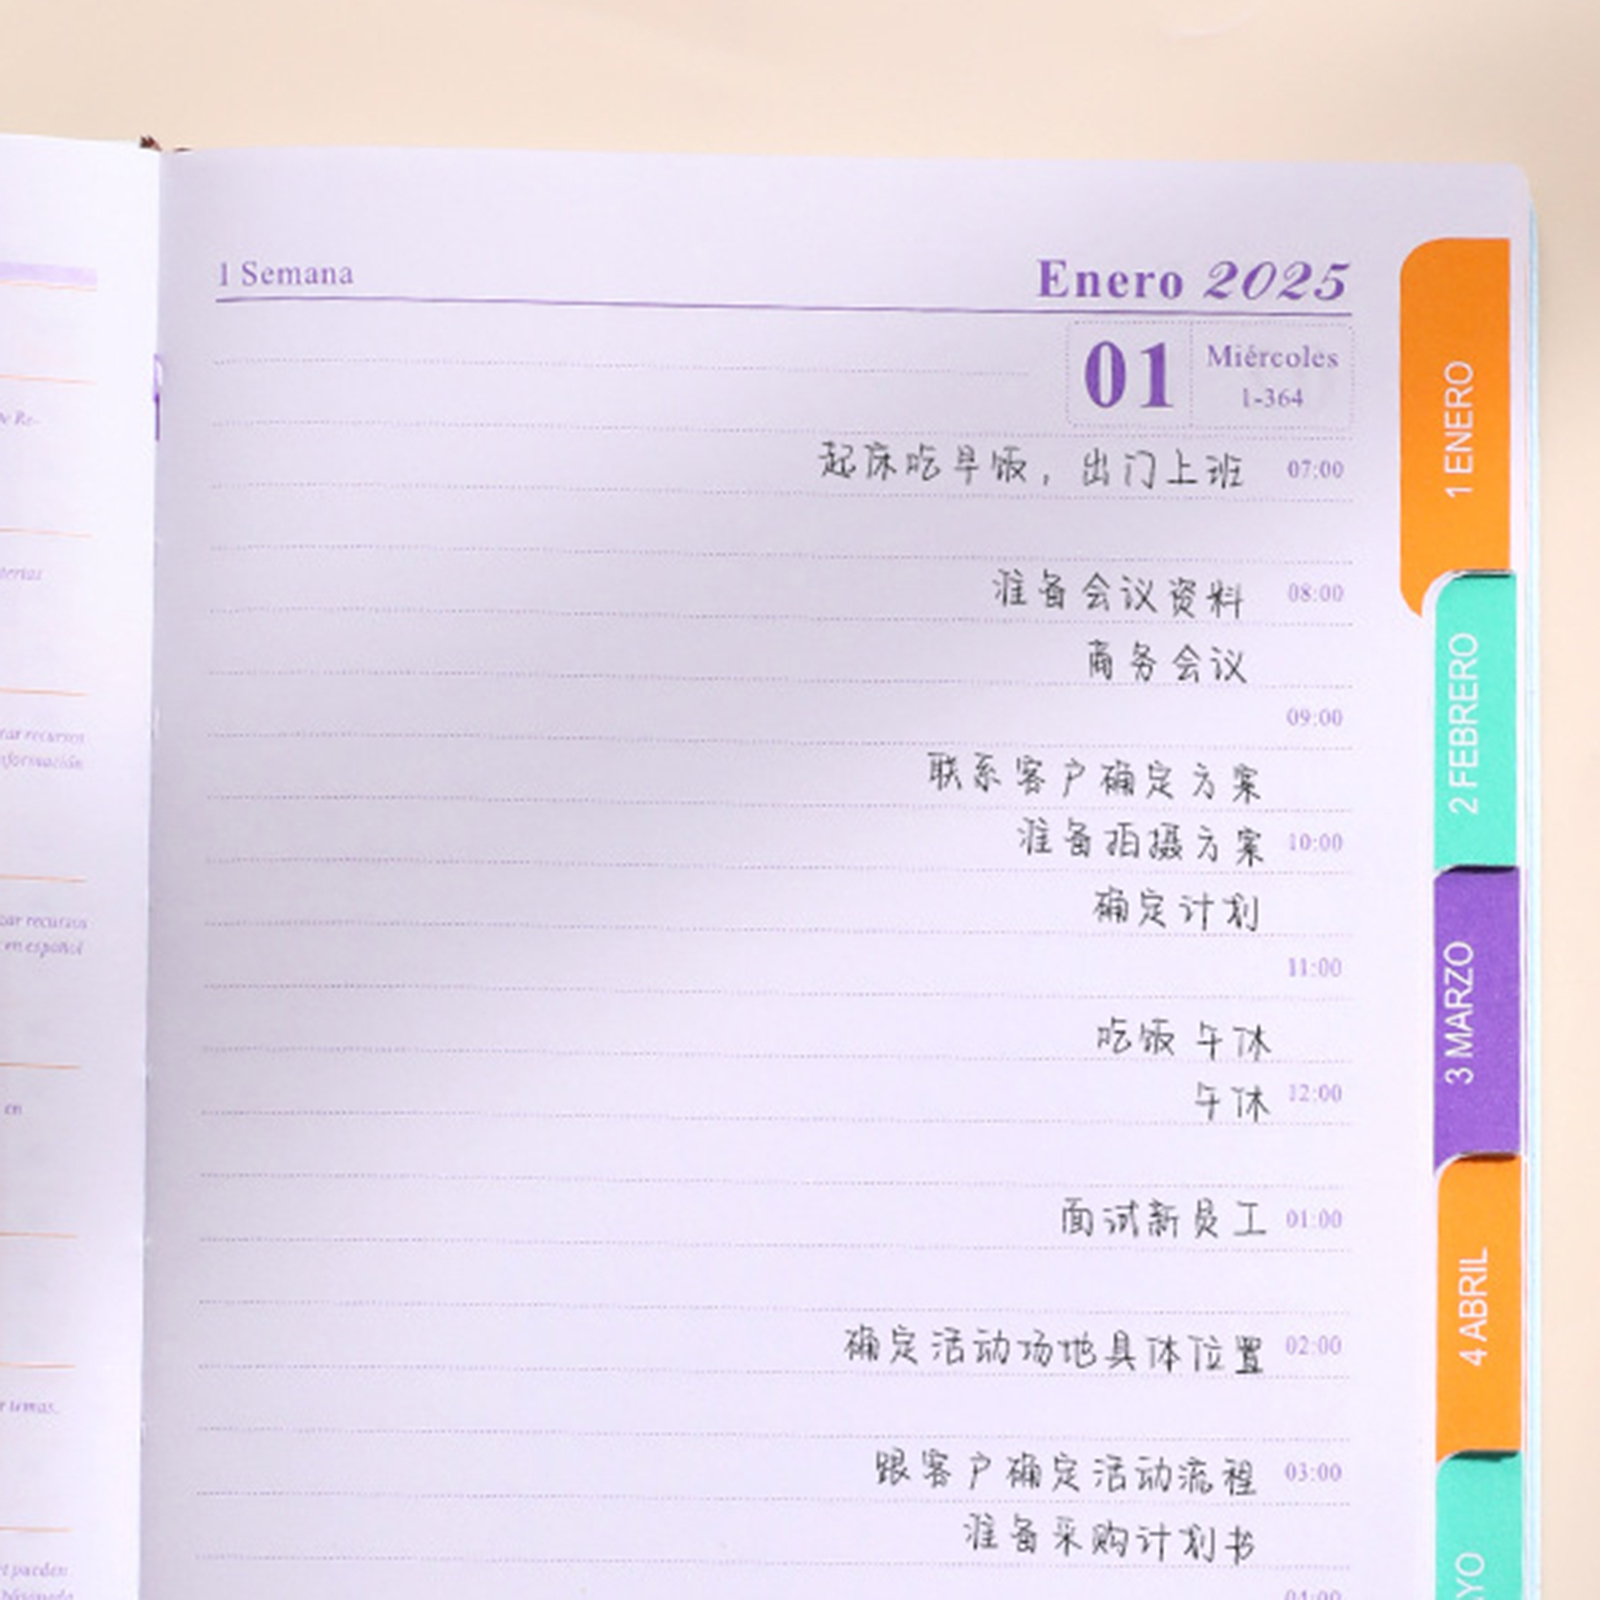 1 Semana
Enero 2025
01
Miércoles
1-364
起床吃早饭，出门上班 07:00
准备会议资料 08:00
商务会议
09:00
联系客户确定方案
准备拍摄方案 10:00
确定计划
11:00
吃饭 午休
午休 12:00
面试新员工 01:00
确定活动场地具体位置 02:00
跟客户确定活动流程 03:00
准备采购计划书
04:00
1 ENERO
2 FEBRERO
3 MARZO
4 ABRIL
YO
e Re-
terias
zar recursos
nformación
zar recursos
en español
en
r temas.
et pueden
búsqueda